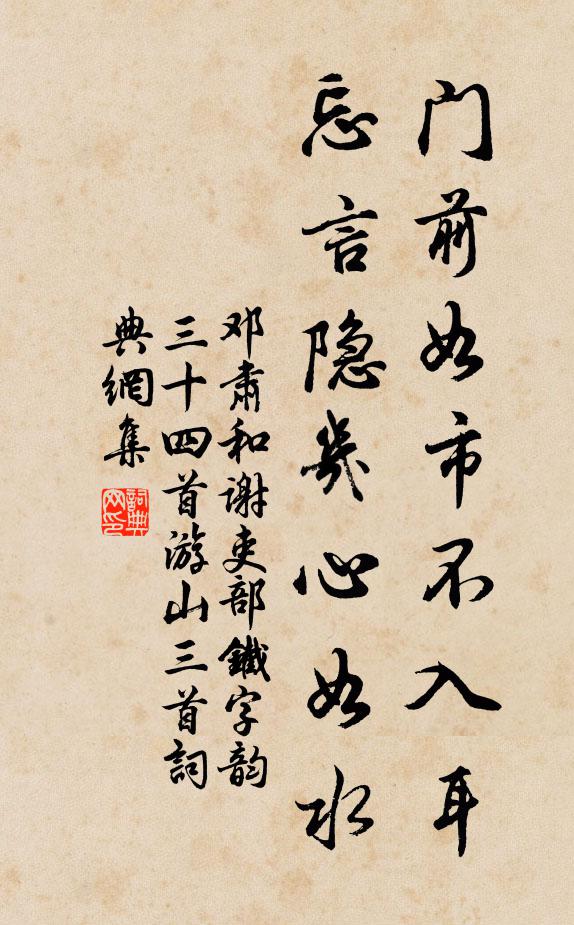 门前如市不入耳
忘言隐几心如水
邓肃和谢吏部鐵字韵
三十四首游山三首詞
典網集
詞典网印